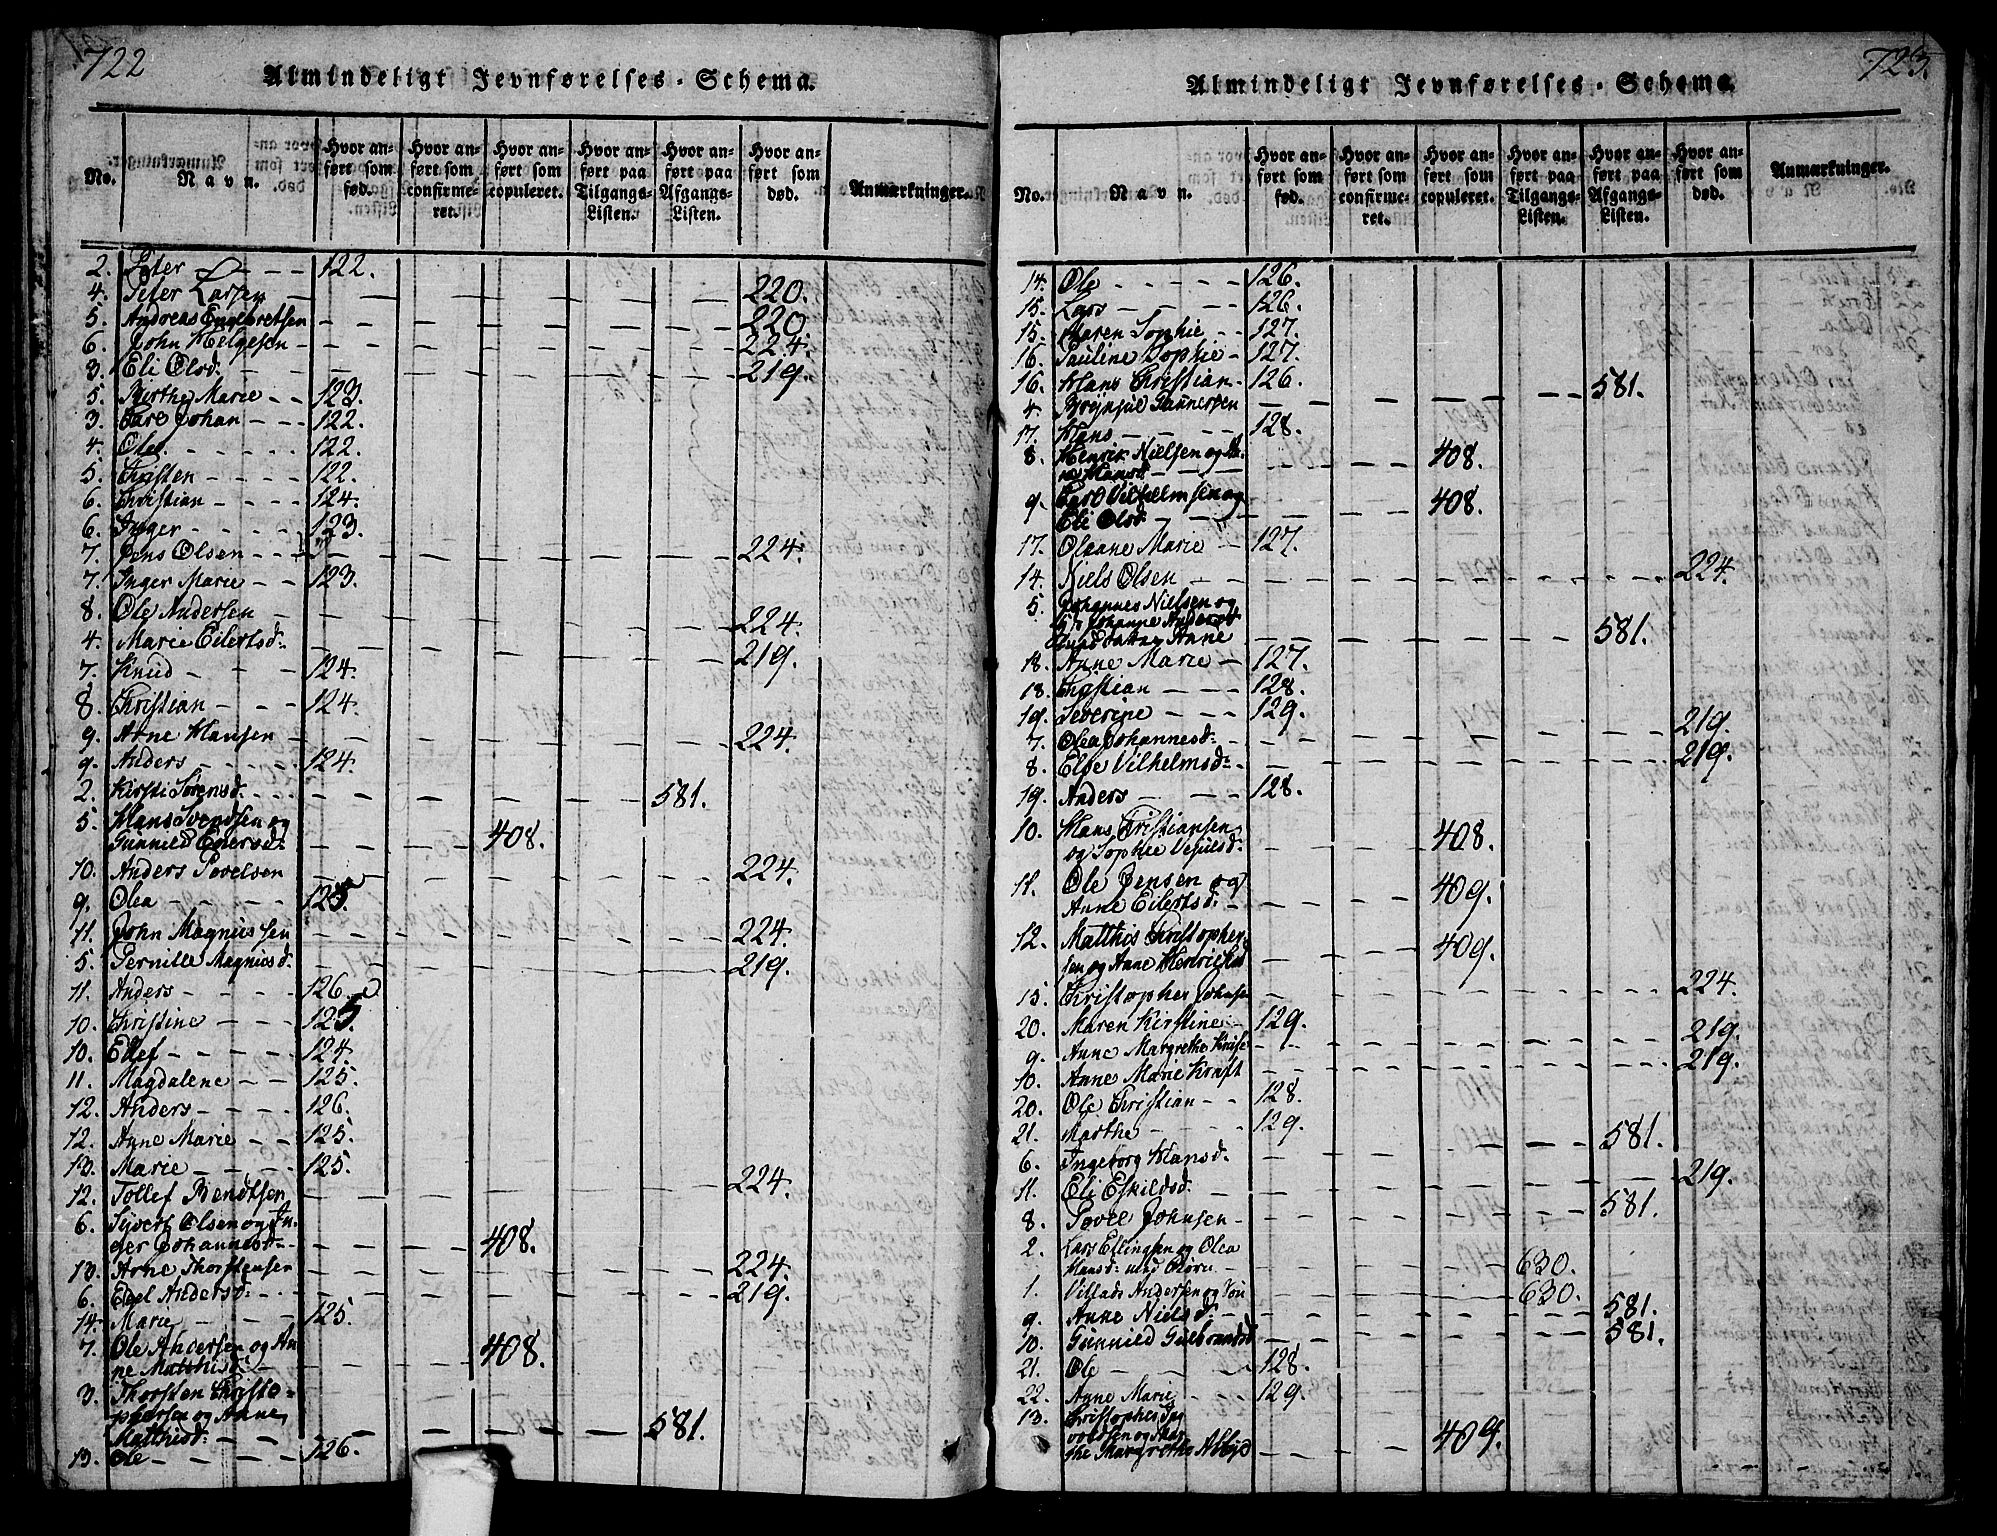 722
Almindeligt Jevnførelses-Schema.
No. Navn. Hvor anført som fød. Hvor anført som confirmeret. Hvor anført som copuleret. Hvor anført paa Tilgangs-Listen. Hvor anført paa Afgangs-Listen. Hvor anført som død. Anmærkninger.
2. Peter 122.
4. Peter Larsen 220.
5. Andreas Engebretsen 220
6. John Helgesen 224.
3. Eli Olsd. 219.
5. Birthe Marie 123.
3. Carl Johan 122.
4. Ole 122.
5. Christen 122.
6. Christian 124.
6. Inger 123.
7. Jens Olsen 224.
7. Inger Marie 123.
8. Ole Andersen 224.
4. Marie Eilertsd: 219.
7. Knud 124.
8. Christian 124.
9. Arne Hansen 224.
9. Anders 124.
2. Kirsti Sørensd. 581.
5. Hans Svendsen og
Gunnild Enersd: 408.
10. Anders Povelsen 224.
9. Olea 125.
11. John Magnussen 224.
5. Pernille Magnusd. 219.
11. Anders 126.
10. Christine 125.
10. Ellef 124.
11. Magdalene 125.
12. Anders 126.
12. Anne Marie 125.
13. Marie 125.
12. Tollef Bendtsen 224.
6. Syvert Olsen og In-
ger Johannesd: 408.
13. Arne Thorstensen 224.
6. Edel Andersd: 219.
14. Marie 125.
7. Ole Andersen og An
ne Matthisd: 408.
3. Thorsten Christo-
phersen og Anne
Matthisd: 581.
13. Ole 126.
723.
Almindeligt Jevnførelses-Schema.
No. Navn. Hvor anført som fød. Hvor anført som confirmeret. Hvor anført som copuleret. Hvor anført paa Tilgangs-Listen. Hvor anført paa Afgangs-Listen. Hvor anført som død. Anmærkninger.
14. Ole 126.
15. Lars 126.
15. Maren Sophie 127.
16. Pauline Sophie 127.
16. Hans Christian 126.
4. Brynjul Gunnersen 581.
17. Hans 128.
8. Henrik Nielsen og
Hansd: 408.
9. Carl Vilhelmsen og
Eli Olsd. 408.
17. Oleane Marie 127.
14. Niels Olsen 224.
5. Johannes Nielsen og
Johanne Andersd
Anne 581.
18. Anne Marie 127.
18. Christian 128.
19. Severine 129.
7. Olea Johannesd: 219.
8. Else Vilhelmsd: 219.
19. Anders 128.
10. Hans Christiansen
og Sophie 408.
11. Ole Jensen og
Anne Eilertsd: 409.
12. Matthis Christopher-
sen og Anne Henriksd 409.
15. Christopher Johnsen 224.
20. Maren Kirstine 129.
9. Anne Margrethe 219.
10. Anne Marie Kraft 219.
20. Ole Christian 128.
21. Marthe 129.
6. Ingeborg Hansd: 581.
11. Eli Eskildsd. 219.
8. Povel Johnsen 581.
2. Lars Ellingsen og Olea
Hansd: med Børn 630.
1. Villads Andersen og 630.
9. Anne Nielsd. 581.
10. Gunnild Gulbrandsd 581.
21. Ole 128.
22. Anne Marie 129.
13. Christopher
og Mar
the Margrethe 409.